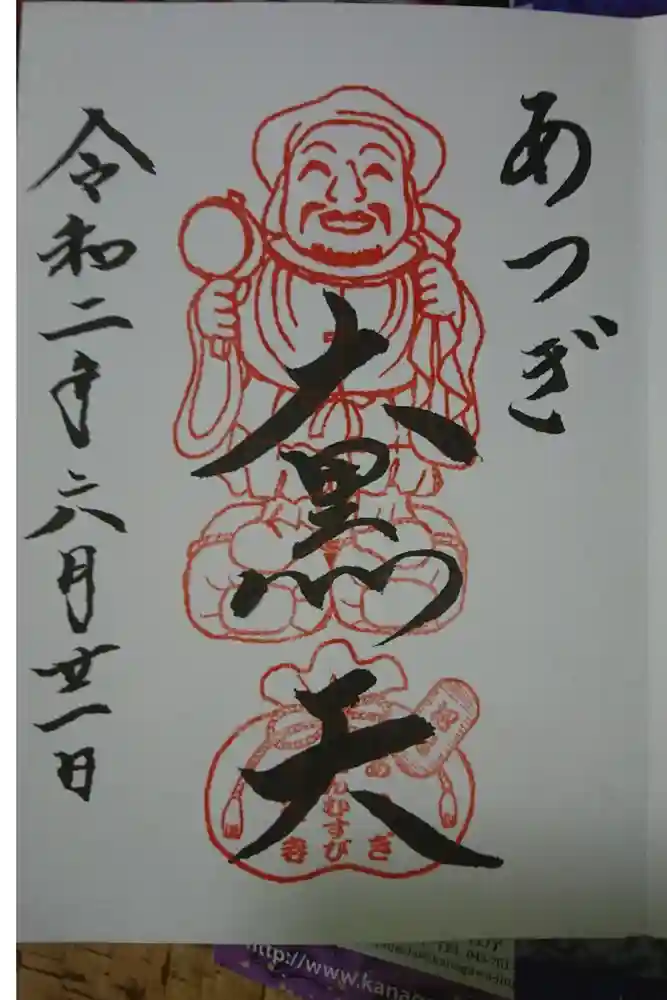 あつぎ
大黒天
令和二年六月廿一日
むすび
ぎ
http://www.kana
TEL 043-761